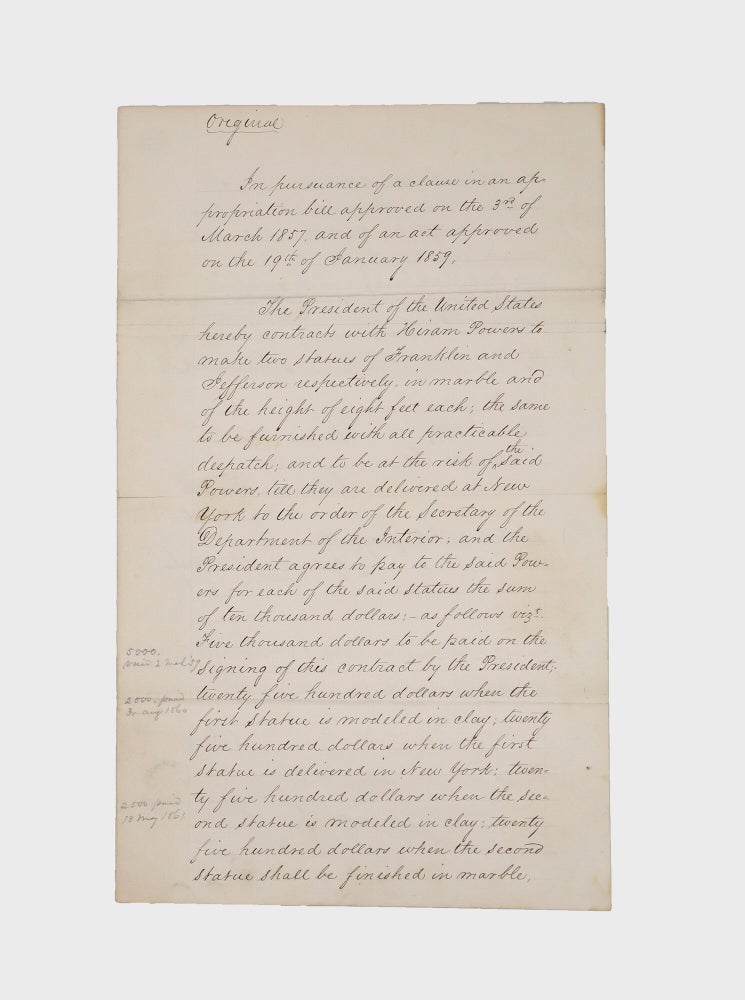 Original
In pursuance of a clause in an ap-
propriation bill approved on the 3rd of
March 1857, and of an act approved
on the 19th of January 1859,
The President of the United States
hereby contracts with Hiram Powers to
make two statues of Franklin and
Jefferson respectively, in marble and
of the height of eight feet each; the same
to be furnished with all practicable
despatch; and to be at the risk of the said
Powers, till they are delivered at New
York to the order of the Secretary of the
Department of the Interior; and the
President agrees to pay to the said Pow-
ers for each of the said statues the sum
of ten thousand dollars;- as follows vizt.
Five thousand dollars to be paid on the
signing of this contract by the President;
twenty five hundred dollars when the
first statue is modeled in clay; twenty
five hundred dollars when the first
statue is delivered in New York; twen-
ty five hundred dollars when the sec-
ond statue is modeled in clay; twenty
five hundred dollars when the second
statue shall be finished in marble,
5000.
2 '59
2500. paid
3 aug 1860
2500 paid
13 May 1861